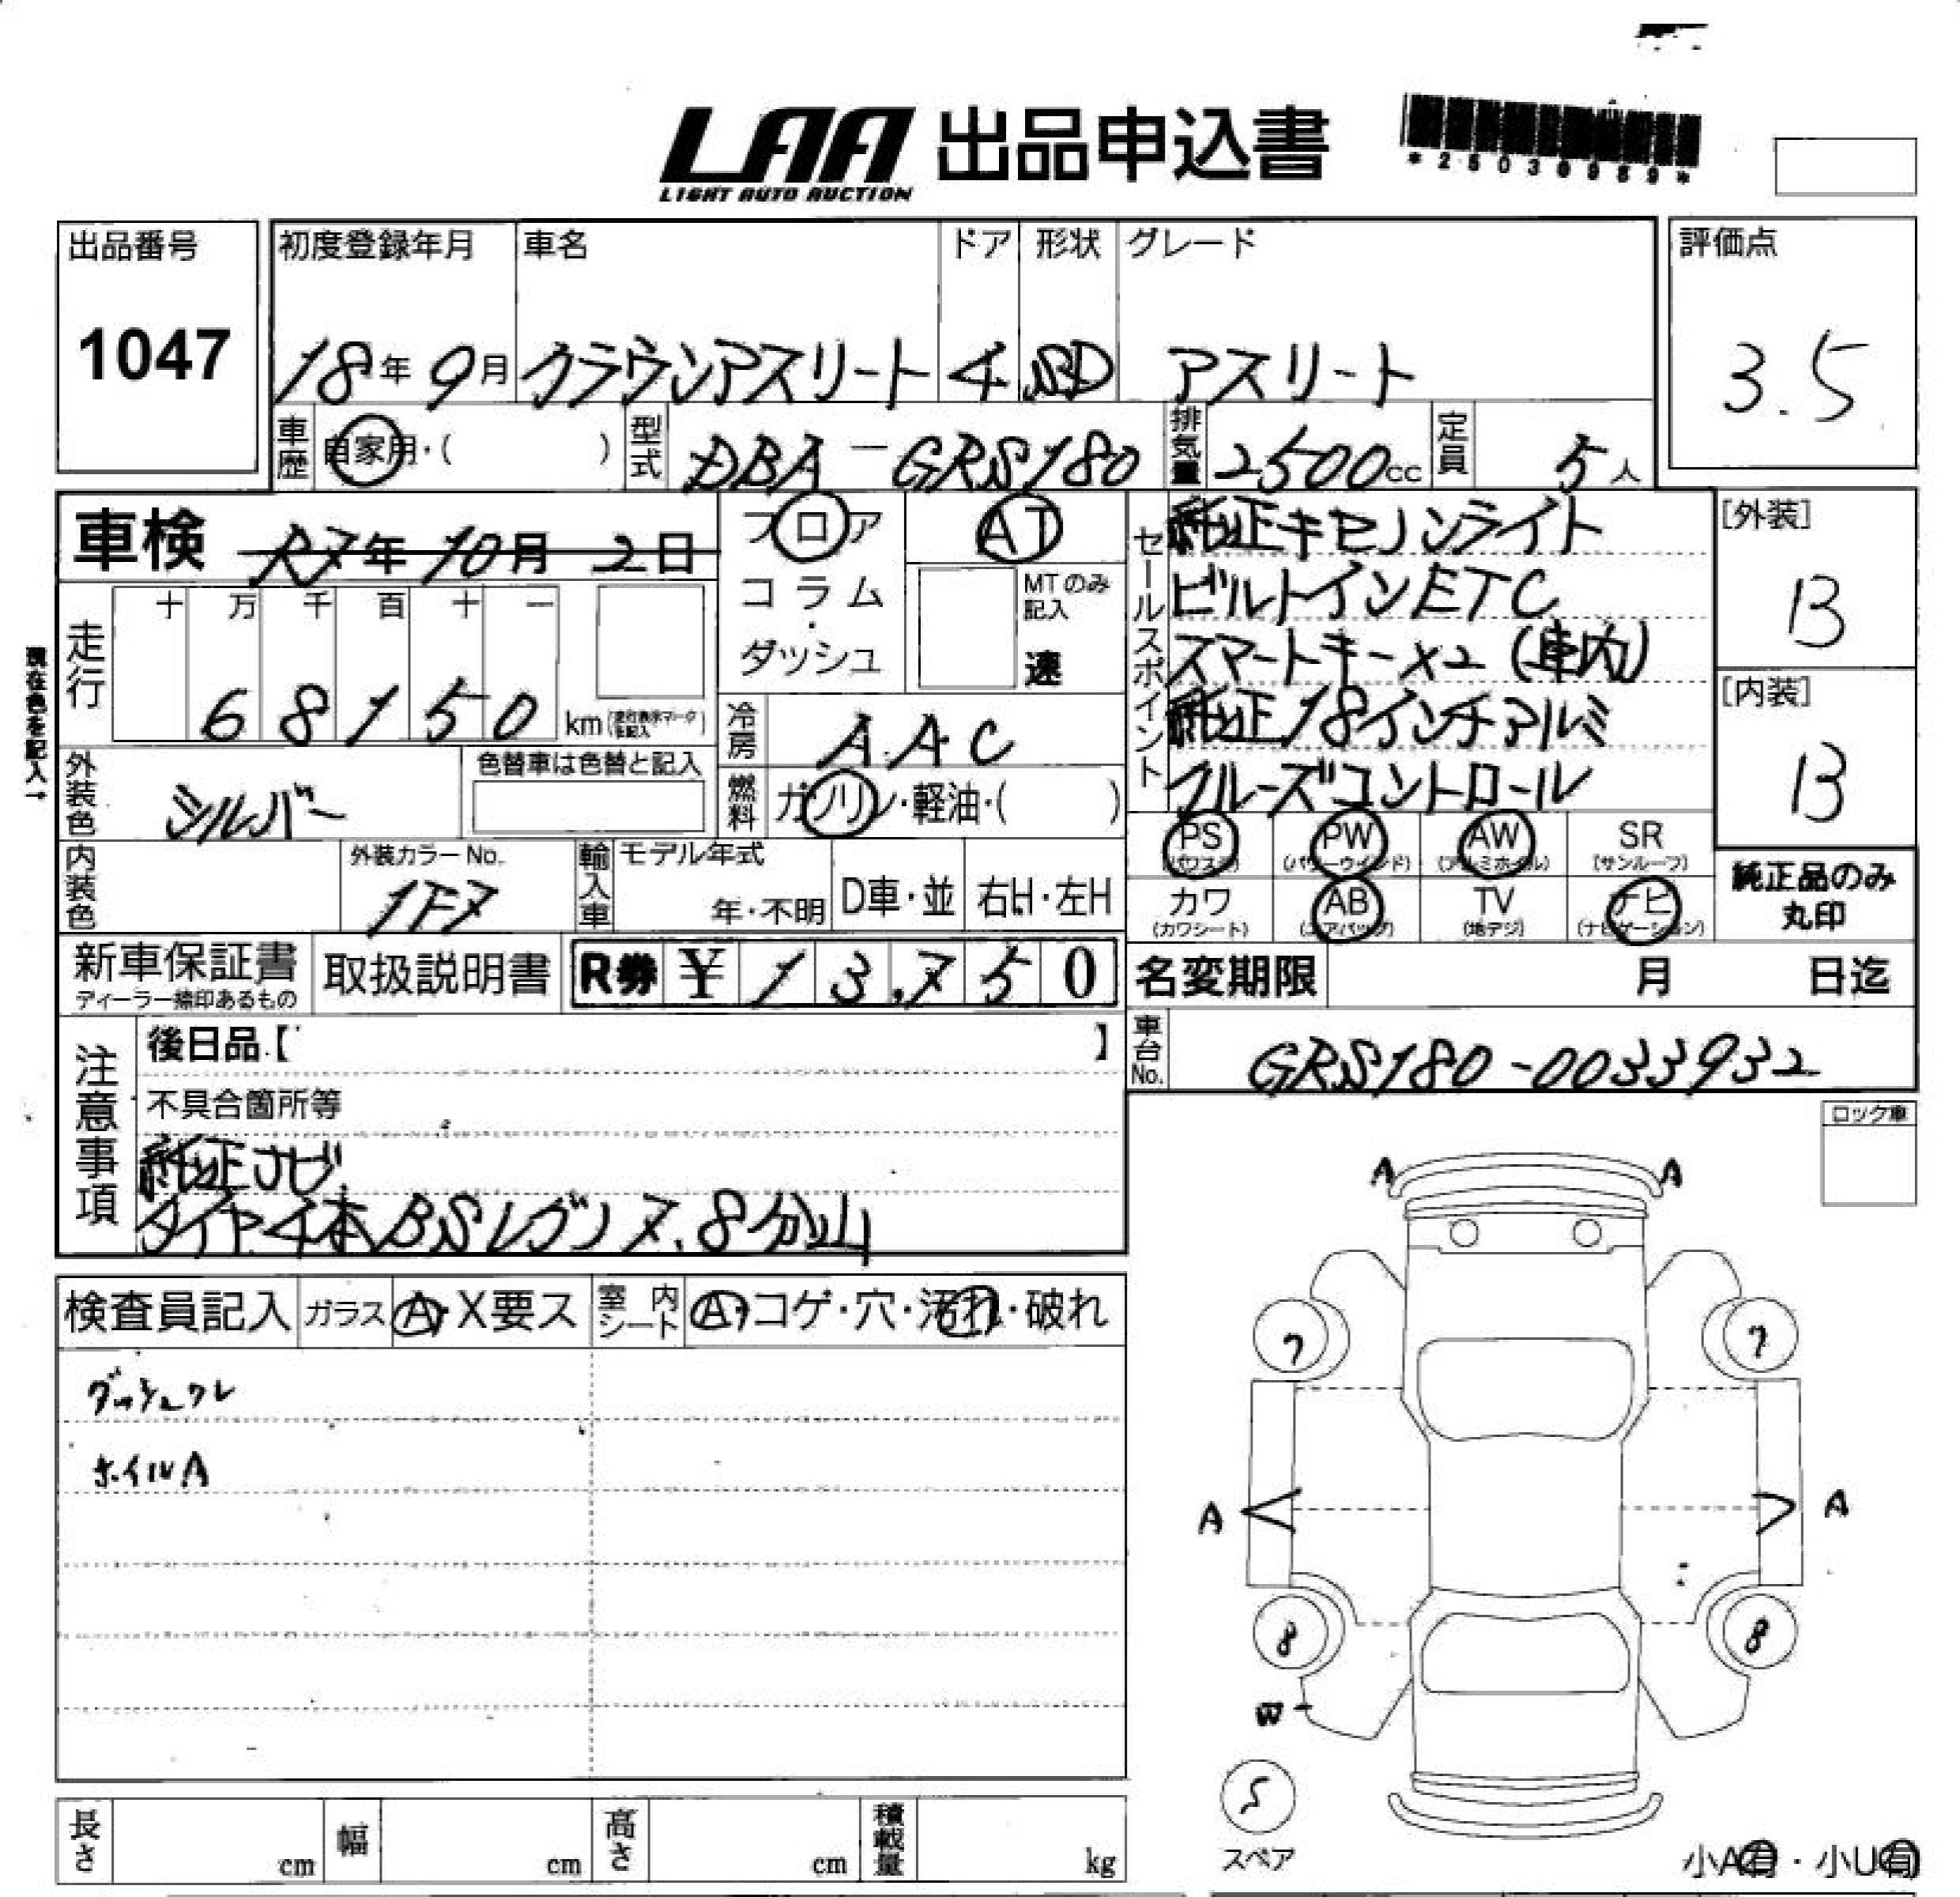 LAA 出品申込書
LIGHT AUTO AUCTION
出品番号
1047
初度登録年月
18年9月
車名
クラウンアスリート
ドア
4
形状
SD
グレード
アスリート
評価点
3.5
車歴
自家用・( )
型式
DBA-GRS180
排気量
2500cc
定員
5人
車検 R7年10月2日
フロア
コラム
・
ダッシュ
AT
MTのみ
記入
速
セールスポイント
純正キセノンライト
ビルトインETC
スマートキー×2 (車内)
純正18インチアルミ
クルーズコントロール
[外装]
B
[内装]
B
現在色を記入→
走行
十 万 千 百 十 一
6 8 1 5 0 km
冷房
AAC
燃料
ガソリン・軽油・( )
外装色
シルバー
色替車は色替と記入
内装色
外装カラーNo.
1F7
輸入車
モデル年式
年・不明
D車・並
右H・左H
PS
(パワステ)
PW
(パワーウインド)
AW
(アルミホイル)
SR
(サンルーフ)
カワ
(カワシート)
AB
(エアバッグ)
TV
(地デジ)
ナビ
(ナビゲーション)
純正品のみ
丸印
新車保証書
ディーラー捺印あるもの
取扱説明書
R券 ¥ 13,750
名変期限 月 日迄
車台No.
GRS180-0033932
注意事項
後日品【 】
不具合箇所等
純正ナビ
タイヤ4本BSレグノ 7.8分山
ロック車
検査員記入
ガラス
A・X要ス
室内シート
A・コゲ・穴・汚れ・破れ
ダッシュワレ
ホイルA
A A
7 7
A A
8 8
W
S
スペア
小A有・小U有
長さ cm
幅 cm
高さ cm
積載量 kg